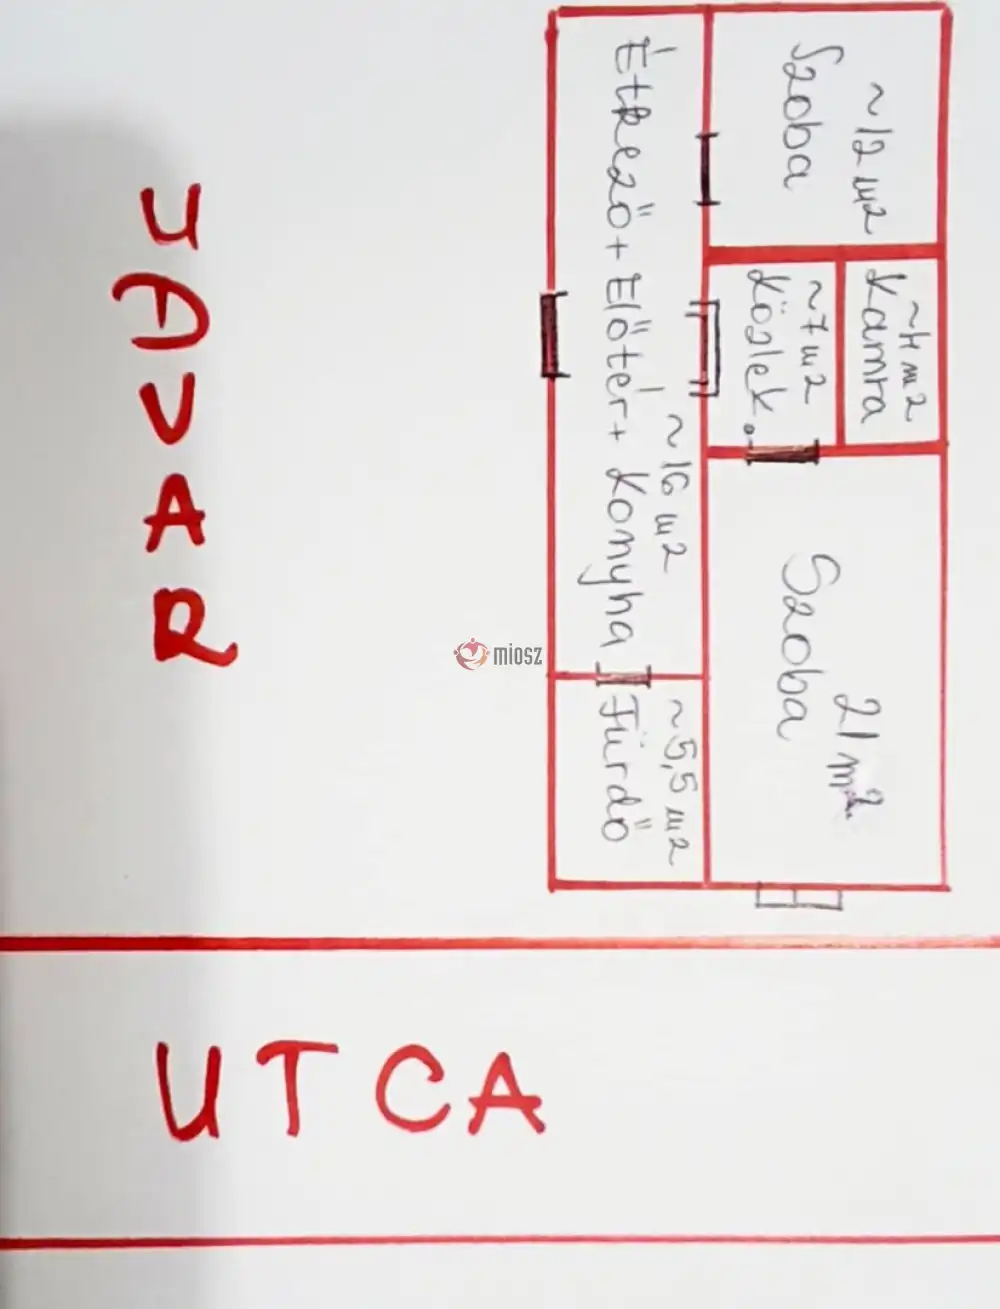 ~12 m2
Szoba
~4 m2
Kamra
~7 m2
Közlek.
21 m2
Szoba
~16 m2
Étkező + Előtér + Konyha
~5,5 m2
Fürdő
UDVAR
miosz
UTCA